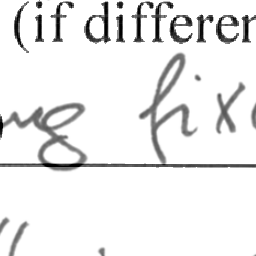 (if differen
ng fix